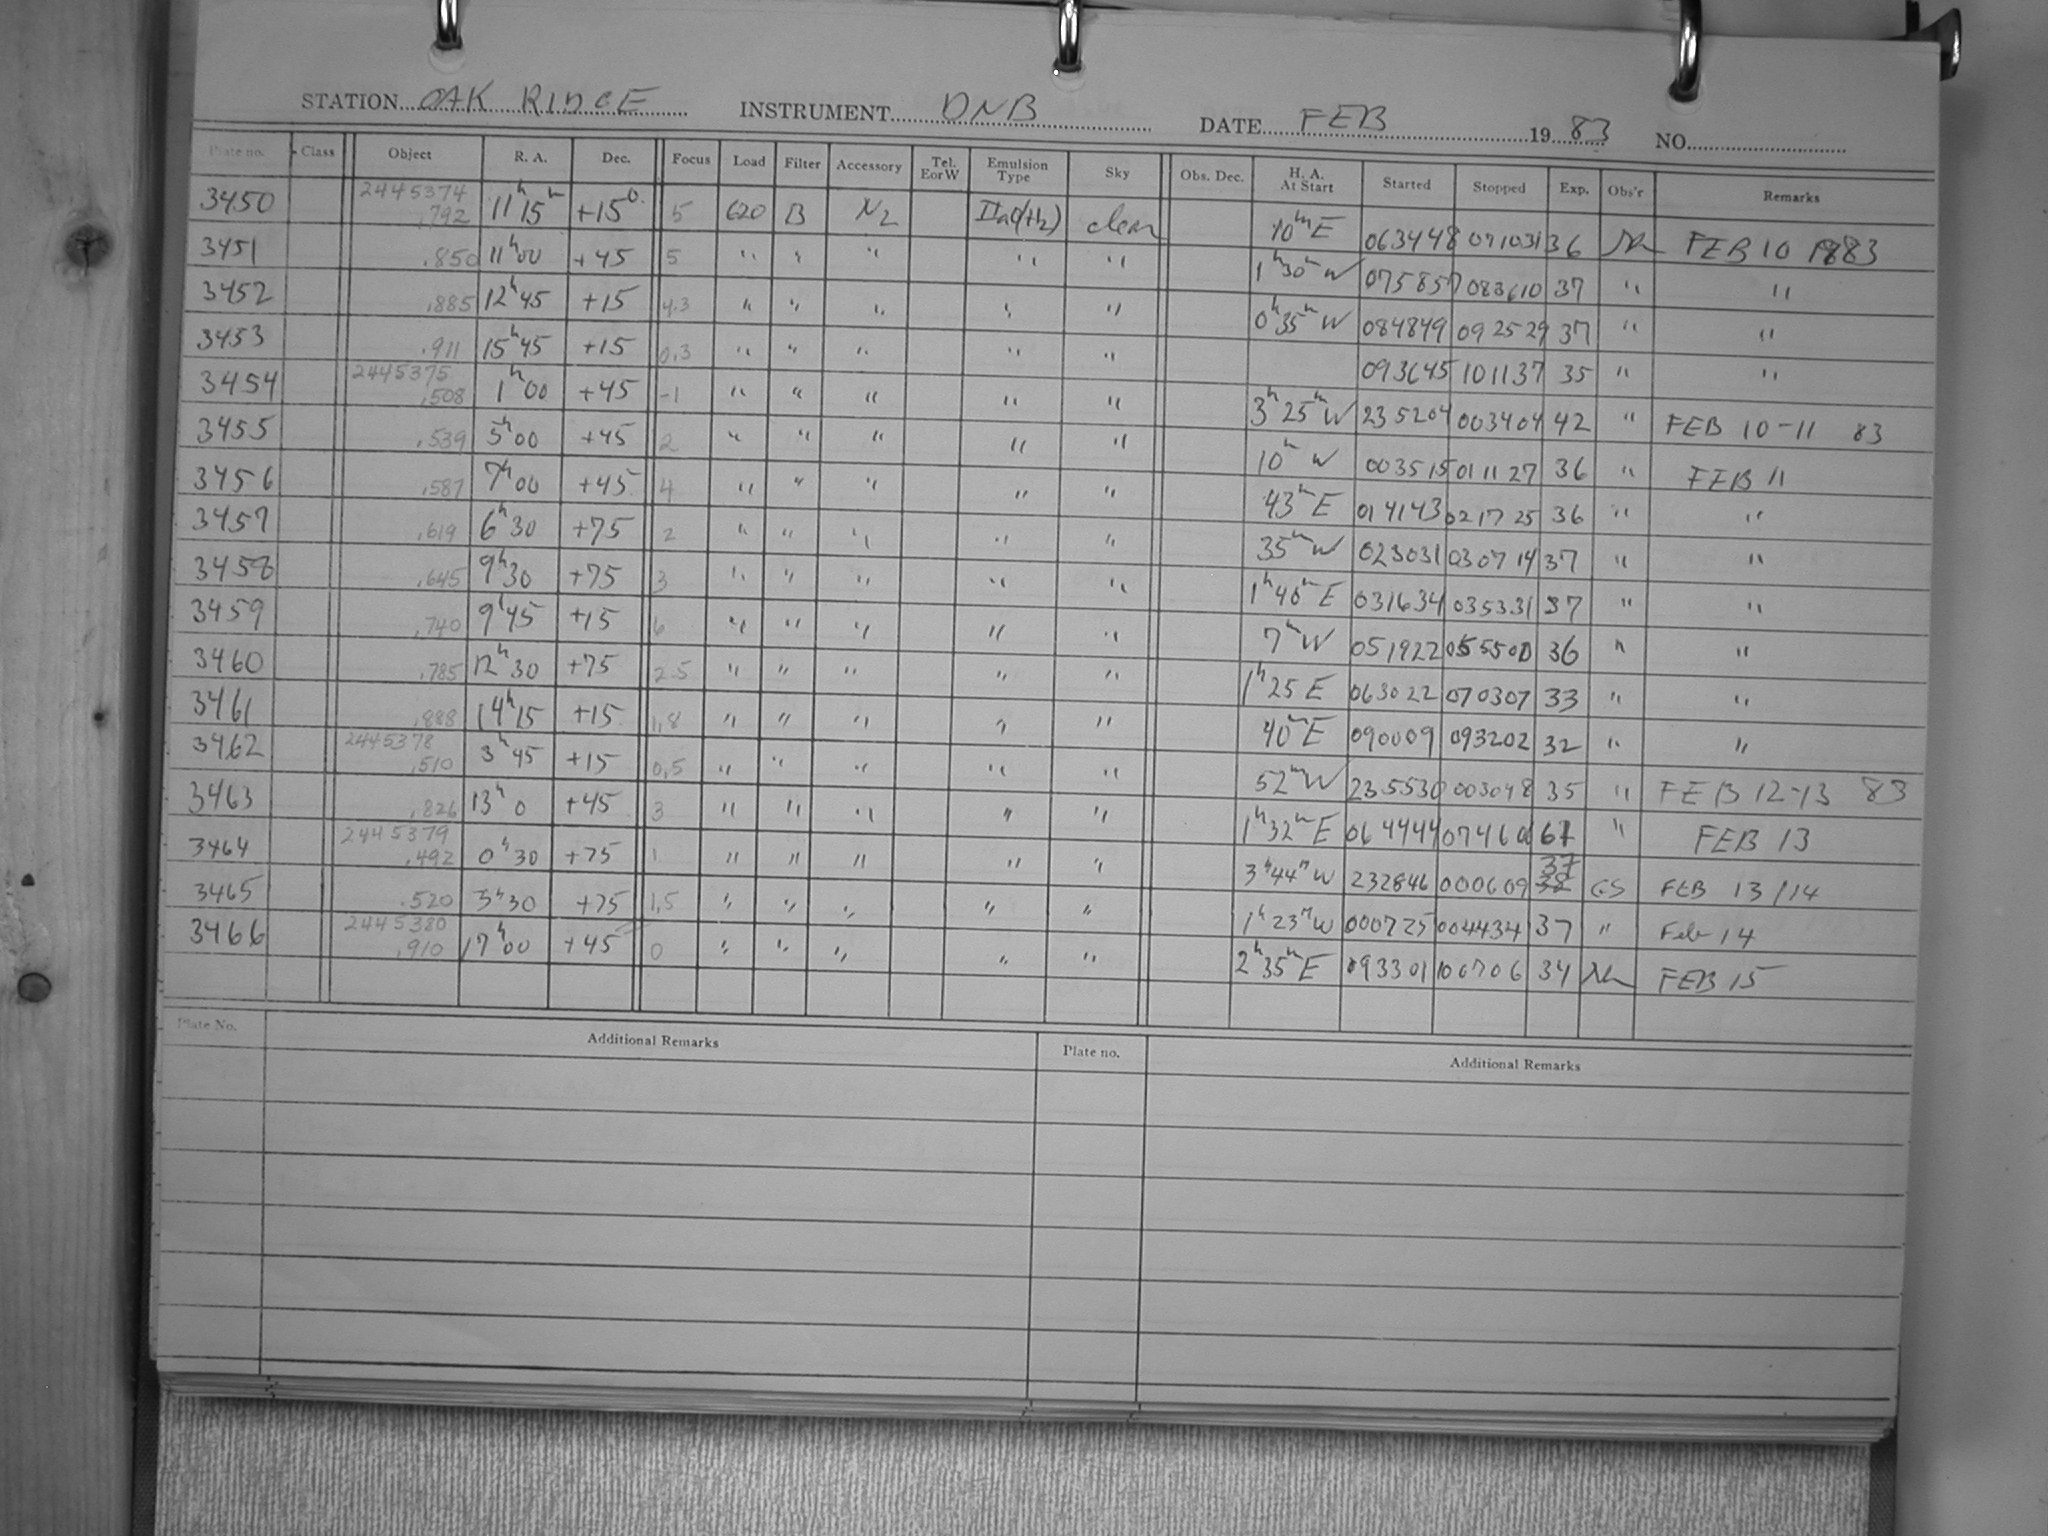 STATION OAK RIDGE INSTRUMENT DNB DATE FEB 19 83 NO.
Plate no. Class Object R. A. Dec. Focus Load Filter Accessory Tel. E or W Emulsion Type Sky Obs. Dec. H. A. At Start Started Stopped Exp. Obs'r Remarks
3450 2445374 .792 11h 15m +15° 5 620 B N2 IIaO(H2) clear 10m E 063448 071031 36 FEB 10 1983
3451 .850 11h 00 +45 5 " " " " " 1h 30m W 075857 083610 37 " "
3452 .885 12h 45 +15 4.3 " " " " " 0h 35m W 084849 092529 37 " "
3453 .911 15h 45 +15 0.3 " " " " " 093645 101137 35 " "
3454 2445375 .508 1h 00 +45 -1 " " " " " 3h 25m W 235204 003404 42 " FEB 10-11 83
3455 .539 5h 00 +45 2 " " " " " 10m W 003515 011127 36 " FEB 11
3456 .587 7h 00 +45 4 " " " " " 43m E 014143 021725 36 " "
3457 .619 6h 30 +75 2 " " " " " 35m W 023031 030714 37 " "
3458 .645 9h 30 +75 3 " " " " " 1h 40m E 031634 035331 37 " "
3459 .740 9h 45 +15 6 " " " " " 7m W 051922 055500 36 " "
3460 .785 12h 30 +75 2.5 " " " " " 1h 25 E 063022 070307 33 " "
3461 .888 14h 15 +15 1.8 " " " " " 40m E 090009 093202 32 " "
3462 2445378 .510 3h 45 +15 0.5 " " " " " 52m W 235530 003048 35 " FEB 12-13 83
3463 .826 13h 0 +45 3 " " " " " 1h 32m E 064444 61 " FEB 13
3464 2445379 .492 0h 30 +75 1 " " " " " 3h 44m W 232846 000609 37 38 GS FEB 13/14
3465 .520 5h 30 +75 1.5 " " " " " 1h 23m W 000725 004434 37 " Feb 14
3466 2445380 .910 17h 00 +45 0 " " " " " 2h 35m E 093301 100706 34 FEB 15
Plate No. Additional Remarks Plate no. Additional Remarks